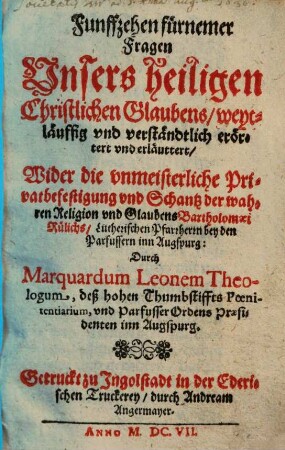 Funffzehen fürnemer
Fragen
Vnsers heiligen
Christlichen Glaubens / weyt-
läuffig vnd verständtlich erör-
tert vnd erläuttert /
Wider die vnmeisterliche Pri-
vatbefestigung vnd Schantz der wah-
ren Religion vnd Glaubens Bartholomæi
Rülichs / Lutherischen Pfarrherrn bey den
Parfussern inn Augspurg:
Durch
Marquardum Leonem Theo-
logum, deß hohen Thumbstiffts Pœni-
tentiarium, vnd Parfusser Ordens Præsi-
denten inn Augspurg.
Getruckt zu Ingolstadt in der Ederi-
schen Truckerey / durch Andream
Angermayer.
ANNO M. DC. VII.